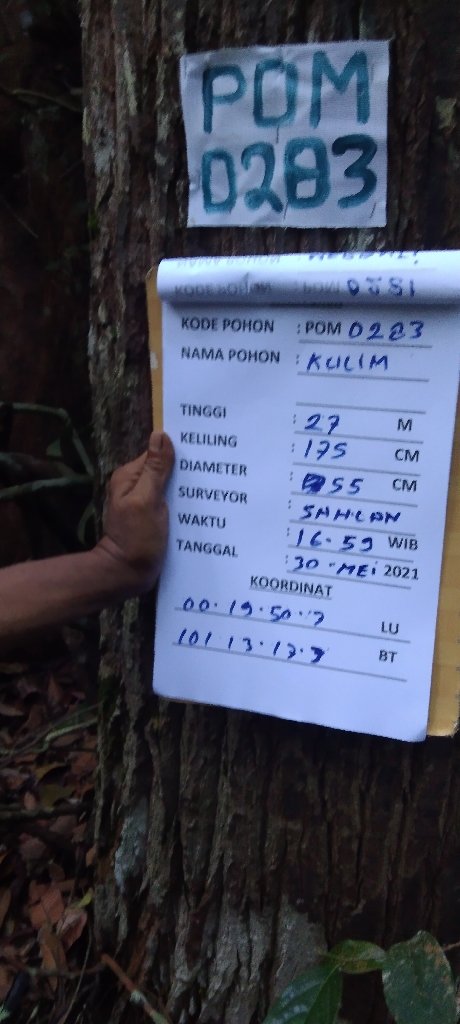 POM
0283
KODE POHON : POM 0281
KODE POHON : POM 0283
NAMA POHON : KULIM
TINGGI : 27 M
KELILING : 175 CM
DIAMETER : 55 CM
SURVEYOR : SAHLAN
WAKTU : 16.59 WIB
TANGGAL : 30 MEI 2021
KOORDINAT
00.19.50.7 LU
101 13.17.9 BT